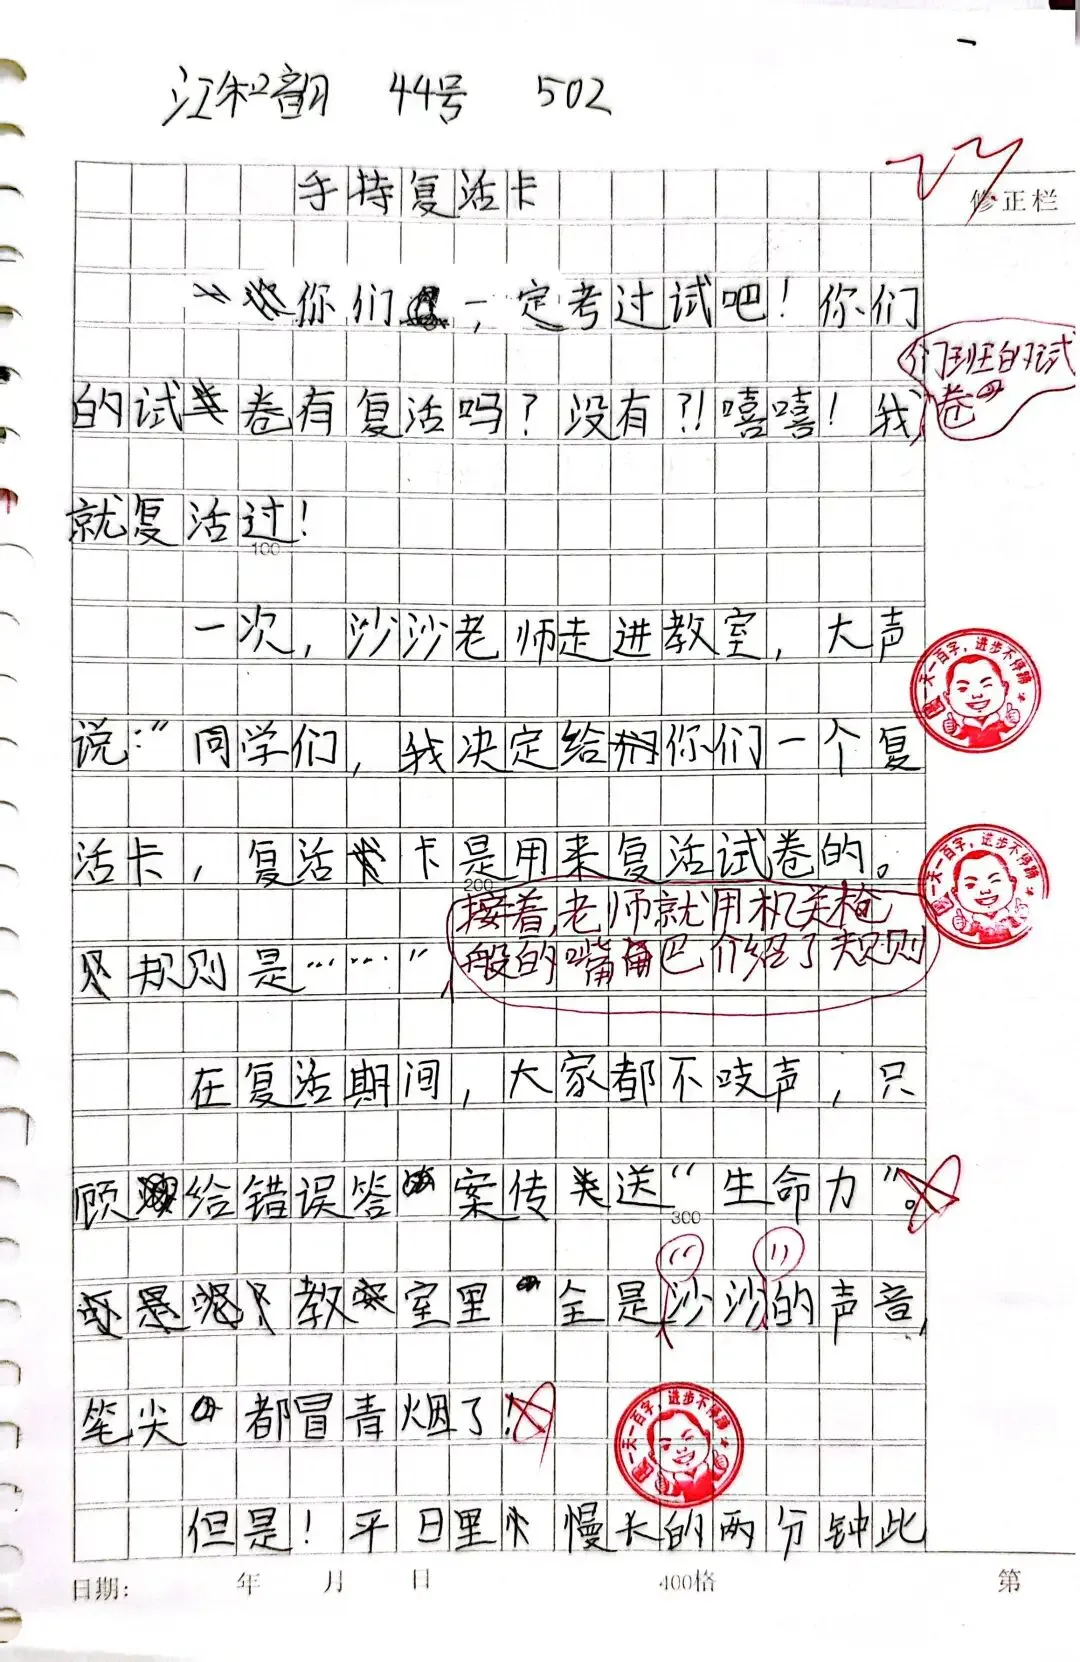 江和韵 44号 502
手持复活卡
修正栏
你们一定考过试吧！你们
们班的试
卷
的试卷有复活吗？没有?!嘻嘻！我
就复活过！
100
一次，沙沙老师走进教室，大声
说：“同学们，我决定给你们一个复
活卡，复活卡是用来复活试卷的。
200
接着，老师就用机关枪
般的嘴巴介绍了规则
规则是……”
在复活期间，大家都不吱声，只
顾给错误答案传送“生命力”。
300
教室里全是“沙沙”的声音，
笔尖都冒青烟了！
但是！平日里慢长的两分钟此
日期： 年 月 日 400格 第
一天一百字，进步不停蹄
一天一百字，进步不停蹄
一天一百字，进步不停蹄